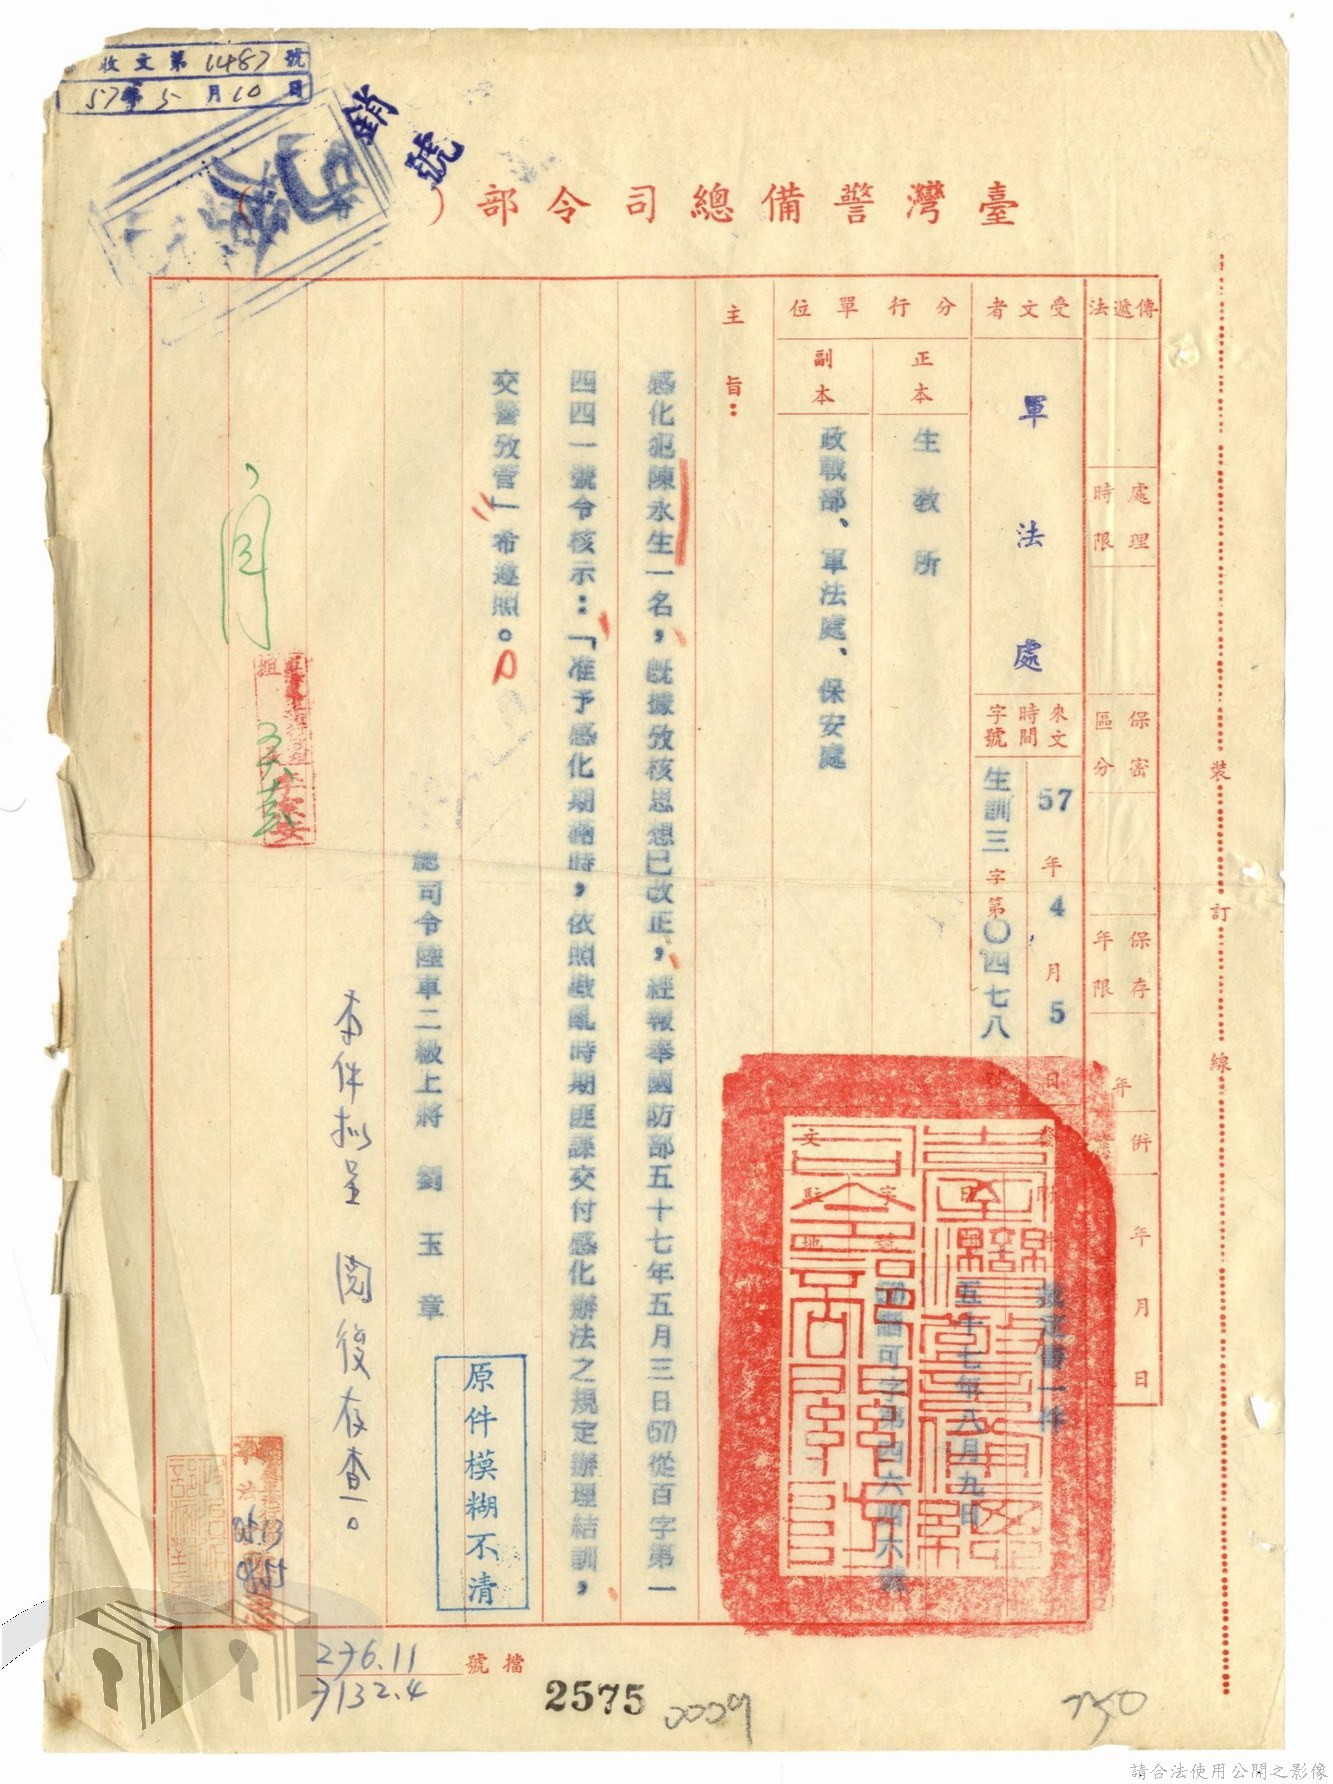 收文第1487號
57年5月10日
銷號
臺灣警備總司令部（　）
傳遞法
處理時限
保密區分
保存年限
年　併
年　月　日
受文者
軍法處
來文時間字號
57年4月5日
生訓三字第〇四七八
分行單位
正本
生教所
副本
政戰部、軍法處、保安處
五十七年八月九日
文
字號
駐地
主旨：
感化犯陳永生一名，既據攷核思想已改正，經報奉國防部五十七年五月三日(57)從百字第一
四四一號令核示：「准予感化期滿時，依照戡亂時期匪諜交付感化辦法之規定辦理結訓，
交警攷管」希遵照。
總司令陸軍二級上將　劉玉章
本件擬呈　閱後存查。
原件模糊不清
檔號
276.11
7132.4
2575
0009
750
裝訂線
請合法使用公開之影像